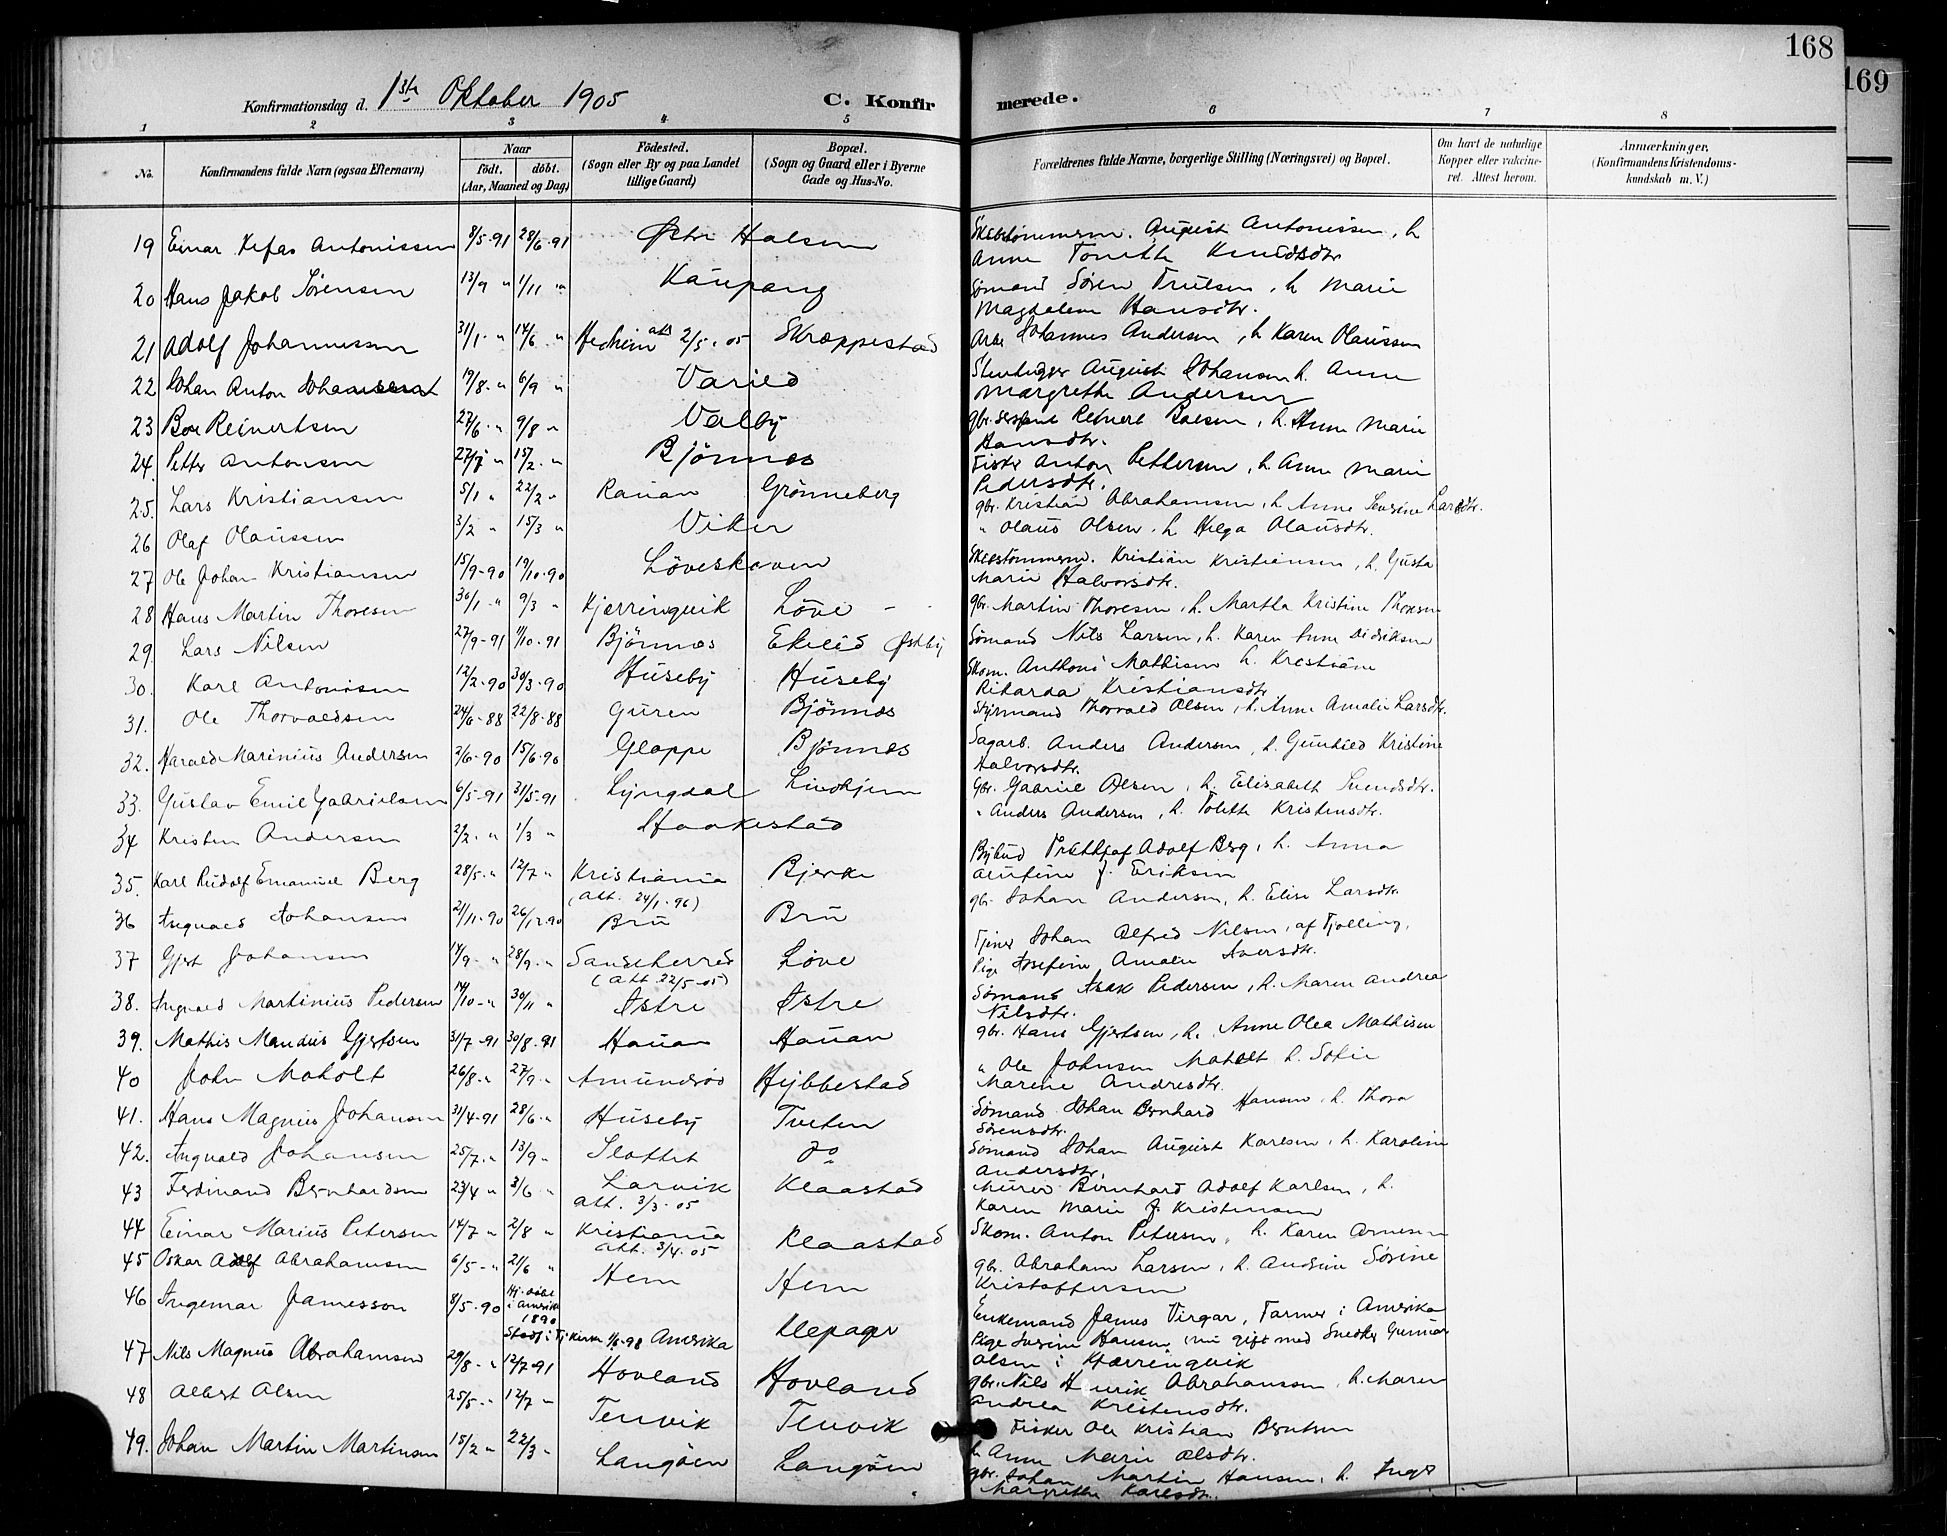 168
169
Konfirmationsdag d. 1ste Oktober 1905
C. Konfirmerede.
1 2 3 4 5 6 7 8
No. Konfirmandens fulde Navn (ogsaa Efternavn) Naar født. døbt. (Aar, Maaned og Dag) Fødested. (Sogn eller By og paa Landet tillige Gaard) Bopæl. (Sogn og Gaard eller i Byerne Gade og Hus-No. Forældrenes fulde Navne, borgerlige Stilling (Næringsvei) og Bopæl. Om havt de naturlige Kopper eller vakcineret. Attest herom. Anmærkninger. (Konfirmandens Kristendomskundskab m. V.)
19 Einar Kefas Antonissen 8/5-91 28/6-91 Østre Halsen Skibstømmerm. August Antonissen, h.
Anne Tonette Knudsdtr
20 Hans Jakob Sørensen 13/9 " 1/11 " Kaupang Sømand Søren Trulsen, h. Marie
Magdalene Hansdtr.
21 Adolf Johannessen 31/1 " 14/6 " Hedheim att 2/5-05 Skreppestad Arb. Johannes Andersen, h. Karen Olaussen
22 Johan Anton Johansen 19/8 " 6/9 " Varild Stenhugger August Johansen h. Anne
Margrethe Andersen
23 Boe Reinertsen 27/6 " 9/8 " Valby gbr. Reinert Boesen, h. Anne Marie
Hansdtr.
24. Petter Antonsen 15/2 " Bjönnes Fisker Anton Pettersen, h. Anne Marie
Pedersdtr.
25. Lars Kristiansen 5/1 " 22/2 " Rauan Grønneberg gbr. Kristian Abrahamsen, h. Anne Larsdtr.
26 Olaf Olaussen 3/2 " 15/3 " Viker " Olaus Olsen, h. Helga Olausdtr.
27 Ole Johan Kristiansen 15/9-90 19/10-90 Löveskoven Skibstömmerm. Kristian Kristiansen, h. Gusta
Marie Halvorsdtr.
28 Hans Martin Thoresen 30/1 " 9/3 " Kjerringvik Löve gbr. Martin Thoresen, h. Martha Kristine Thoresen
29. Lars Nilsen 27/9-91 11/10-91 Bjönnes Ekelid Østby Sömand Nils Larsen, h. Karen Anne Didriksen
30. Karl Antonisen 12/2-90 30/3-90 Huseby Huseby Skom. Anthoni Mathisen h. Kristiane
Rikarda Kristiansdtr
31. Ole Thorvaldsen 24/6-88 22/8-88 Guren Bjönnes Styrmand Thorvald Olsen, h. Anne Amalie Larsdtr.
32. Harald Marinius Andersen 2/6-90 15/6-90 Gloppe Bjönnes Sagarb. Anders Andersen, h. Gunhild Kristine
Halvorsdtr.
33. Gustav Emil Gabrielsen 6/5-91 31/5-91 Lyngdal Lindhjem Gbr. Gabriel Olsen, h. Elisabeth Svendsdtr.
34 Kristen Andersen 2/2 " 1/3 " Haakestad " Anders Andersen, h. Tolette Kristensdtr.
35. Karl Rudolf Emanuel Berg 28/5 " 12/7 " Kristiania (Att. 24/1-96) Bjerke Bybud Adolf Berg, h. Anna
f. Eriksen
36 Ingvald Johansen 21/11-90 26/12-90 Bru Bru gbr. Johan Andersen, h. Elise Larsdtr.
37 Gjert Johansen 14/9 " 28/9 " Sandeherred (Att. 22/5-05) Löve Tjener Johan Alfred Nilsen, af Tjølling,
Pige Josefine Amalie Iversdtr.
38. Ingvald Martinius Pedersen 14/10 " 30/11 " Istre Istre Sømand Isak Pedersen, h. Maren Andrea
Nilsdtr.
39. Mathis Mandius Gjertsen 31/7-91 30/8-91 Hauan Hauan gbr. Hans Gjertsen, h. Anne Olea Mathisen
40 John Moholt 26/8 " 27/9 " Amundröd Hybbestad " Ole Johnsen Moholt h. Sofie
Marine Andresdtr.
41. Hans Magnus Johansen 31/4-91 28/6 " Huseby Tveten Sømand Johan Bernhard Hansen, h. Thora
Sørensdtr.
42. Ingvald Johansen 25/7 " 13/9 " Slottet do Sømand Johan August Karlsen, h. Karoline
Andersdtr.
43 Ferdinand Bernhardsen 23/4 " 3/6 " Larvik Att. 3/3-05 Klaastad Murer Bernhard Adolf Karlsen, h.
Karen Marie f. Kristensen
44 Einar Marius Petersen 14/7 " 2/8 " Kristiania Att. 3/4-05 Klaastad Skom. Anton Petersen, h. Karen Arnesen
45 Oskar Adolf Abrahamsen 6/5 " 21/6 " Hem Hem gbr. Abraham Larsen, h. Andrine Sörine
Kristoffersen
46 Ingemar Jamesson 8/5-90 Hj. döbt i Amerika 1890 Stadf. i Tj. Kirke Amerika Klepager Enkemand James Virgar, Farmer i Amerika
Pige Hansen (nu gift med Snedker Gunnar
Olsen i Kjærringvik
47 Nils Magnus Abrahamsen 29/8 " 12/7-91 Hovland Hovland gbr. Nils Henrik Abrahamsen, h. Maren
Andrea Kristensdtr.
48 Albert Olsen 25/5 " 12/7 " Tenvik Tenvik Fisker Ole Kristian Berntsen
h. Anne Marie Olsdtr.
49. Johan Martin Martinsen 15/2 " 22/3 " Langöen Langöen gbr. Johan Martin Hansen, h. Inger
Margrethe Karlsdtr.